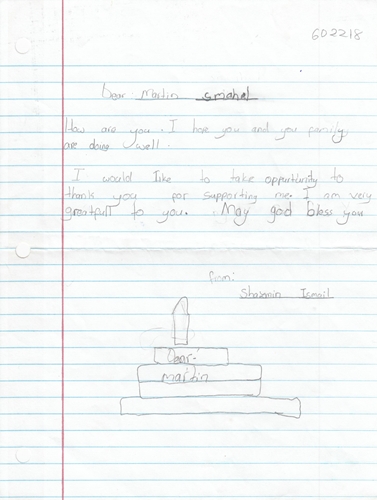 602218
Dear Martin Ismahal
How are you. I hope you and you family
are doing well.
I would like to take oppurtunity to
thank you for supporting me. I am very
greatfull to you. May god bless you
from:
Shasmin Ismail
Dear
martin